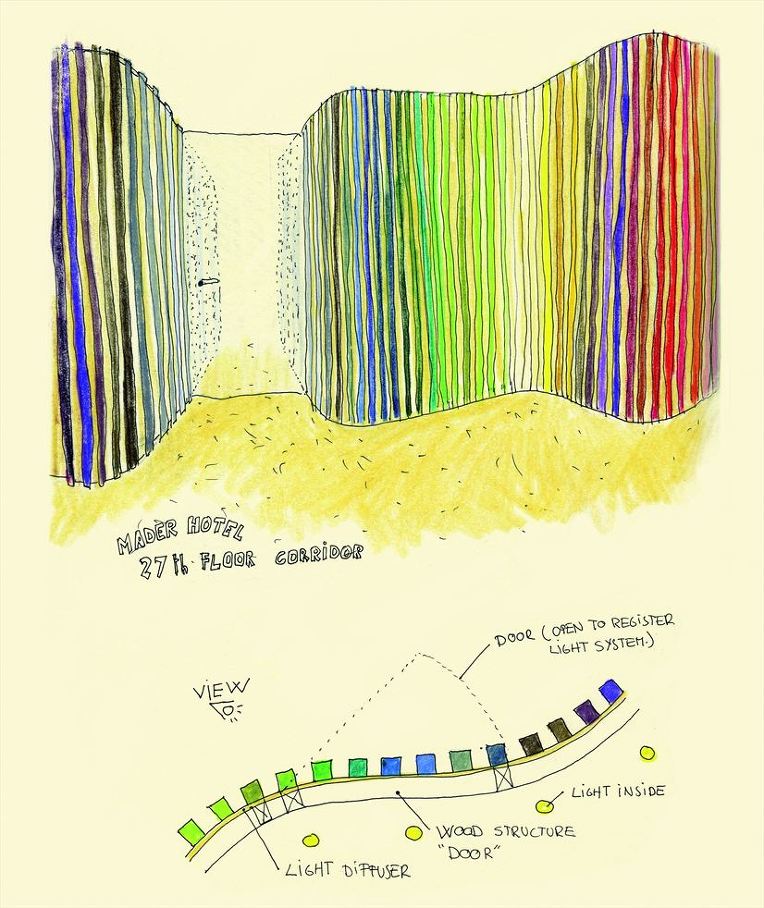 MADER HOTEL
27th FLOOR CORRIDOR
DOOR (OPEN TO REGISTER
LIGHT SYSTEM.)
VIEW
LIGHT INSIDE
WOOD STRUCTURE
"DOOR"
LIGHT DIFFUSER